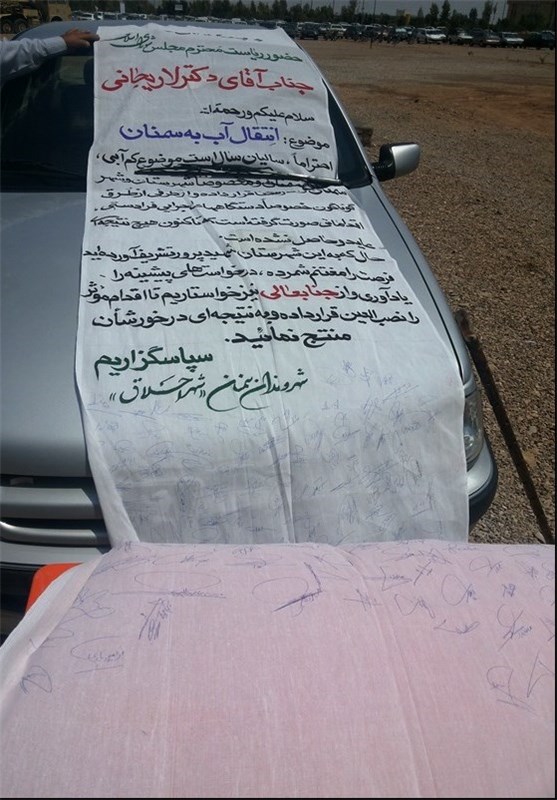 حضور ریاست محترم مجلس شورای اسلامی
جناب آقای دکتر لاریجانی
سلام علیکم و رحمة ا...
موضوع: انتقال آب به سمنان
احتراماً، سالیان سال است موضوع کم آبی،
سمنان و مخصوصاً شهرستان و شهر
قرار داده و از طرفی از طرق
گوناگون خصوصاً دستگاههای اجرایی فراوانی،
اقداماتی صورت گرفته است که تاکنون هیچ نتیجه‌ای
عاید و حاصل نشده است.
حال که به این شهرستان شهید پرور تشریف آورده‌اید
فرصت را مغتنم شمرده، درخواست‌های پیشینه را
یادآوری و از جنابعالی درخواستاریم تا اقدام مؤثر
را نصب العین قرار داده و به نتیجه‌ای در خورشان
منتج نمائید.
سپاسگزاریم
شهروندان سمنان «شهر اخلاق»